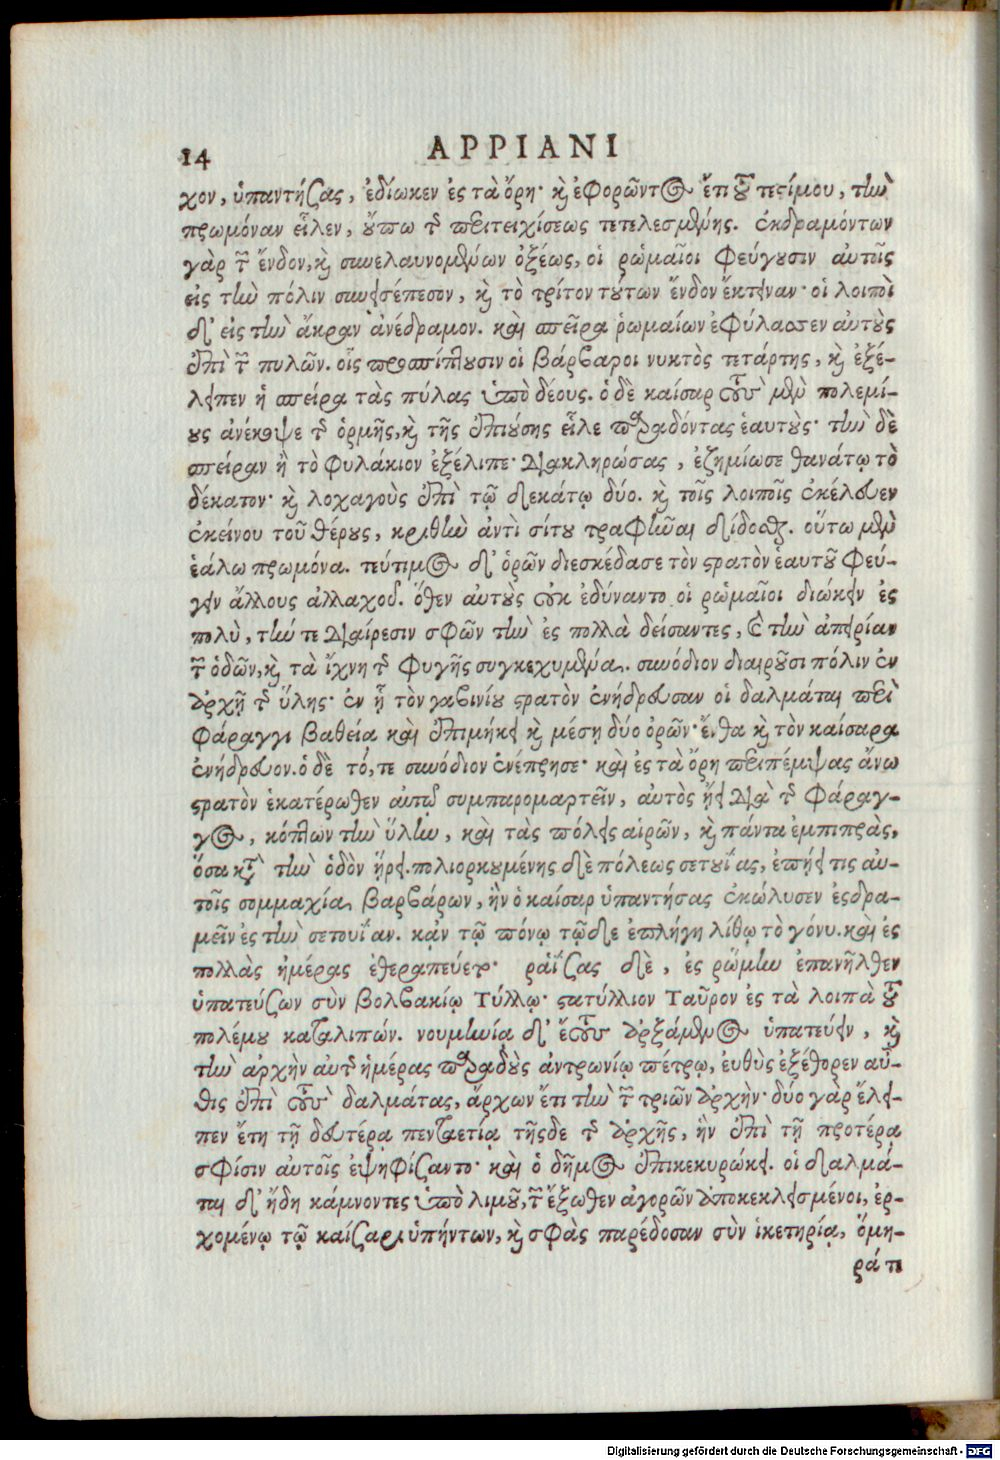 14 APPIANI
χον, ὑπαντήσας, ἐδίωκεν ἐς τὰ ὄρη· καὶ ἐφορῶντος ἔτι τοῦ τεσίμου, τὴν
πρωμόναν εἷλεν, οὔπω τῆς περιτειχίσεως τετελεσμένης. ἐκδραμόντων
γὰρ τῶν ἔνδον, καὶ συνελαυνομένων ὀξέως, οἱ ῥωμαῖοι φεύγουσιν αὐτοῖς
εἰς τὴν πόλιν συνεισέπεσον, καὶ τὸ τρίτον τούτων ἔνδον ἔκτειναν· οἱ λοιποὶ
δ' εἰς τὴν ἄκραν ἀνέδραμον. καὶ σπεῖρα ῥωμαίων ἐφύλασσεν αὐτοὺς
ἐπὶ τῶν πυλῶν. οἷς προσπίπτουσιν οἱ βάρβαροι νυκτὸς τετάρτης, καὶ ἐξέ-
λειπεν ἡ σπείρα τὰς πύλας ὑπὸ δέους. ὁ δὲ καίσαρ τοὺς μὲν πολεμί-
ους ἀνέκοψε τῆς ὁρμῆς, καὶ τῆς ἐπιούσης εἷλε παραδόντας ἑαυτούς· τὴν δὲ
σπείραν ἣ τὸ φυλάκιον ἐξέλιπε· διακληρώσας, ἐζημίωσε θανάτῳ τὸ
δέκατον· καὶ λοχαγοὺς ἐπὶ τῷ δεκάτῳ δύο. καὶ τοῖς λοιποῖς ἐκέλευεν
ἐκείνου τοῦ θέρους, κριθὴν ἀντὶ σίτου τραφῆναι δίδοσθαι. οὕτω μὲν
ἑάλω πρωμόνα. τεύτιμος δ' ὁρῶν διεσκέδασε τὸν στρατὸν ἑαυτοῦ φεύ-
γειν ἄλλους ἀλλαχοῦ. ὅθεν αὐτοὺς οὐκ ἐδύναντο οἱ ῥωμαῖοι διώκειν ἐς
πολὺ, τήν τε διαίρεσιν σφῶν τὴν ἐς πολλὰ δείσαντες, καὶ τὴν ἀπειρίαν
τῶν ὁδῶν, καὶ τὰ ἴχνη τῆς φυγῆς συγκεχυμένα. συνόδιον διαιροῦσι πόλιν ἐν
ἀρχῇ τῆς ὕλης· ἐν ᾗ τὸν γαβινίου στρατὸν ἐνήδρευσαν οἱ δαλμάται περὶ
φάραγγι βαθεία καὶ ἐπιμήκει καὶ μέσῃ δύο ὀρῶν· ἔνθα καὶ τὸν καίσαρα
ἐνήδρευον. ὁ δὲ τό, τε συνόδιον ἐνέπρησε· καὶ ἐς τὰ ὄρη περιπέμψας ἄνω
στρατὸν ἑκατέρωθεν αὐτῷ συμπαρομαρτεῖν, αὐτὸς ᾔει διὰ τῆς φάραγ-
γος, κόπτων τὴν ὕλην, καὶ τὰς πόλεις αἱρῶν, καὶ πάντα ἐμπιπρὰς,
ὅσα κατὰ τὴν ὁδὸν ᾕρει. πολιορκουμένης δὲ πόλεως σετουΐας, ἐπῄει τις αὐ-
τοῖς συμμαχία βαρβάρων, ἣν ὁ καίσαρ ὑπαντήσας ἐκώλυσεν ἐσδρα-
μεῖν ἐς τὴν σετουΐαν. κἀν τῷ πόνῳ τῷδε ἐπλήγη λίθῳ τὸ γόνυ. καὶ ἐς
πολλὰς ἡμέρας ἐθεραπεύετο. ῥαΐσας δὲ, ἐς ῥώμην ἐπανῆλθεν
ὑπατεύσων σὺν βολβακίῳ Τύλλῳ· στατύλλιον Ταῦρον ἐς τὰ λοιπὰ τοῦ
πολέμου καταλιπών. νουμηνίᾳ δ' ἔτους ἀρξάμενος ὑπατεύειν, καὶ
τὴν ἀρχὴν αὐτῆς ἡμέρας παραδοὺς ἀντρωνίῳ πέτρῳ, εὐθὺς ἐξέθορεν αὖ-
θις ἐπὶ τοὺς δαλμάτας, ἄρχων ἔτι τὴν τῶν τριῶν ἀρχήν· δύο γὰρ ἔλει-
πεν ἔτη τῇ δευτέρᾳ πενταετίᾳ τῆςδε τῆς ἀρχῆς, ἣν ἐπὶ τῇ προτέρᾳ
σφίσιν αὐτοῖς ἐψηφίσαντο· καὶ ὁ δῆμος ἐπικεκυρώκει. οἱ δαλμά-
ται δ' ἤδη κάμνοντες ὑπὸ λιμοῦ, τῶν ἔξωθεν ἀγορῶν ἀποκεκλεισμένοι, ἐρ-
χομένῳ τῷ καίσαρι ὑπήντων, καὶ σφὰς παρέδοσαν σὺν ἱκετηρίᾳ, ὅμη-
ρά τε
Digitalisierung gefördert durch die Deutsche Forschungsgemeinschaft - DFG